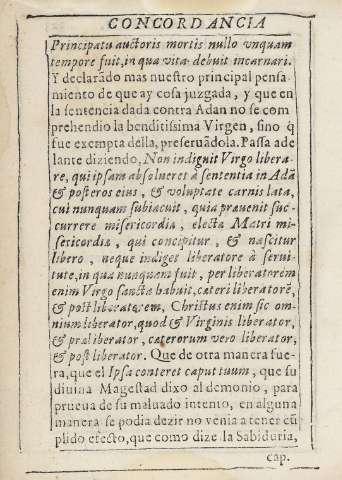 CONCORDANCIA
Principatu auctoris mortis nullo vnquam
tempore fuit, in qua vita debuit incarnari.
Y declarãdo mas nuestro principal pensa
miento de que ay cosa juzgada, y que en
la sentencia dada contra Adan no se com
prehendio la benditissima Virgen, sino q̃
fue exempta della, preseruãdola. Passa ade
lante diziendo, Non indiguit Virgo libera-
re, qui ipsam absolueret à sententia in Adã
& posteros eius, & voluptate carnis lata,
cui nunquam subiacuit, quia præuenit suc-
currere misericordia, electa Matri mi-
sericordiæ, qui concipitur, & nascitur
libero, neque indiget liberatore à serui-
tute, in qua nunquam fuit, per liberatorem
enim Virgo sanctæ habuit, cæteri liberatorẽ,
& post liberatorem, Christus enim sic om-
nium liberator, quod & Virginis liberator,
& præliberator, cæterorum vero liberator,
& post liberator. Que de otra manera fue-
ra, que el Ipsa conteret caput tuum, que su
diuina Magestad dixo al demonio, para
prueua de su maluado intento, en alguna
manera se podia dezir no venia a tener cũ
plido efecto, que como dize la Sabiduria,
cap.